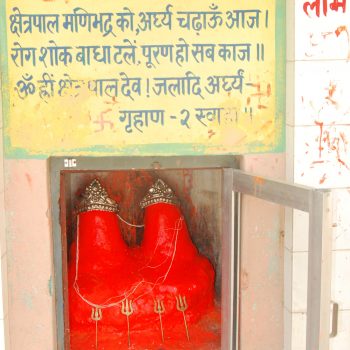 क्षेत्रपाल मणिभद्र को, अर्घ्य चढ़ाऊँ आज।
रोग शोक बाधा टलें, पूरण हो सब काज॥
ॐ ह्रीं क्षेत्रपाल देव! जलादि अर्घ्यं-
गृहाण - २ स्वाहा।